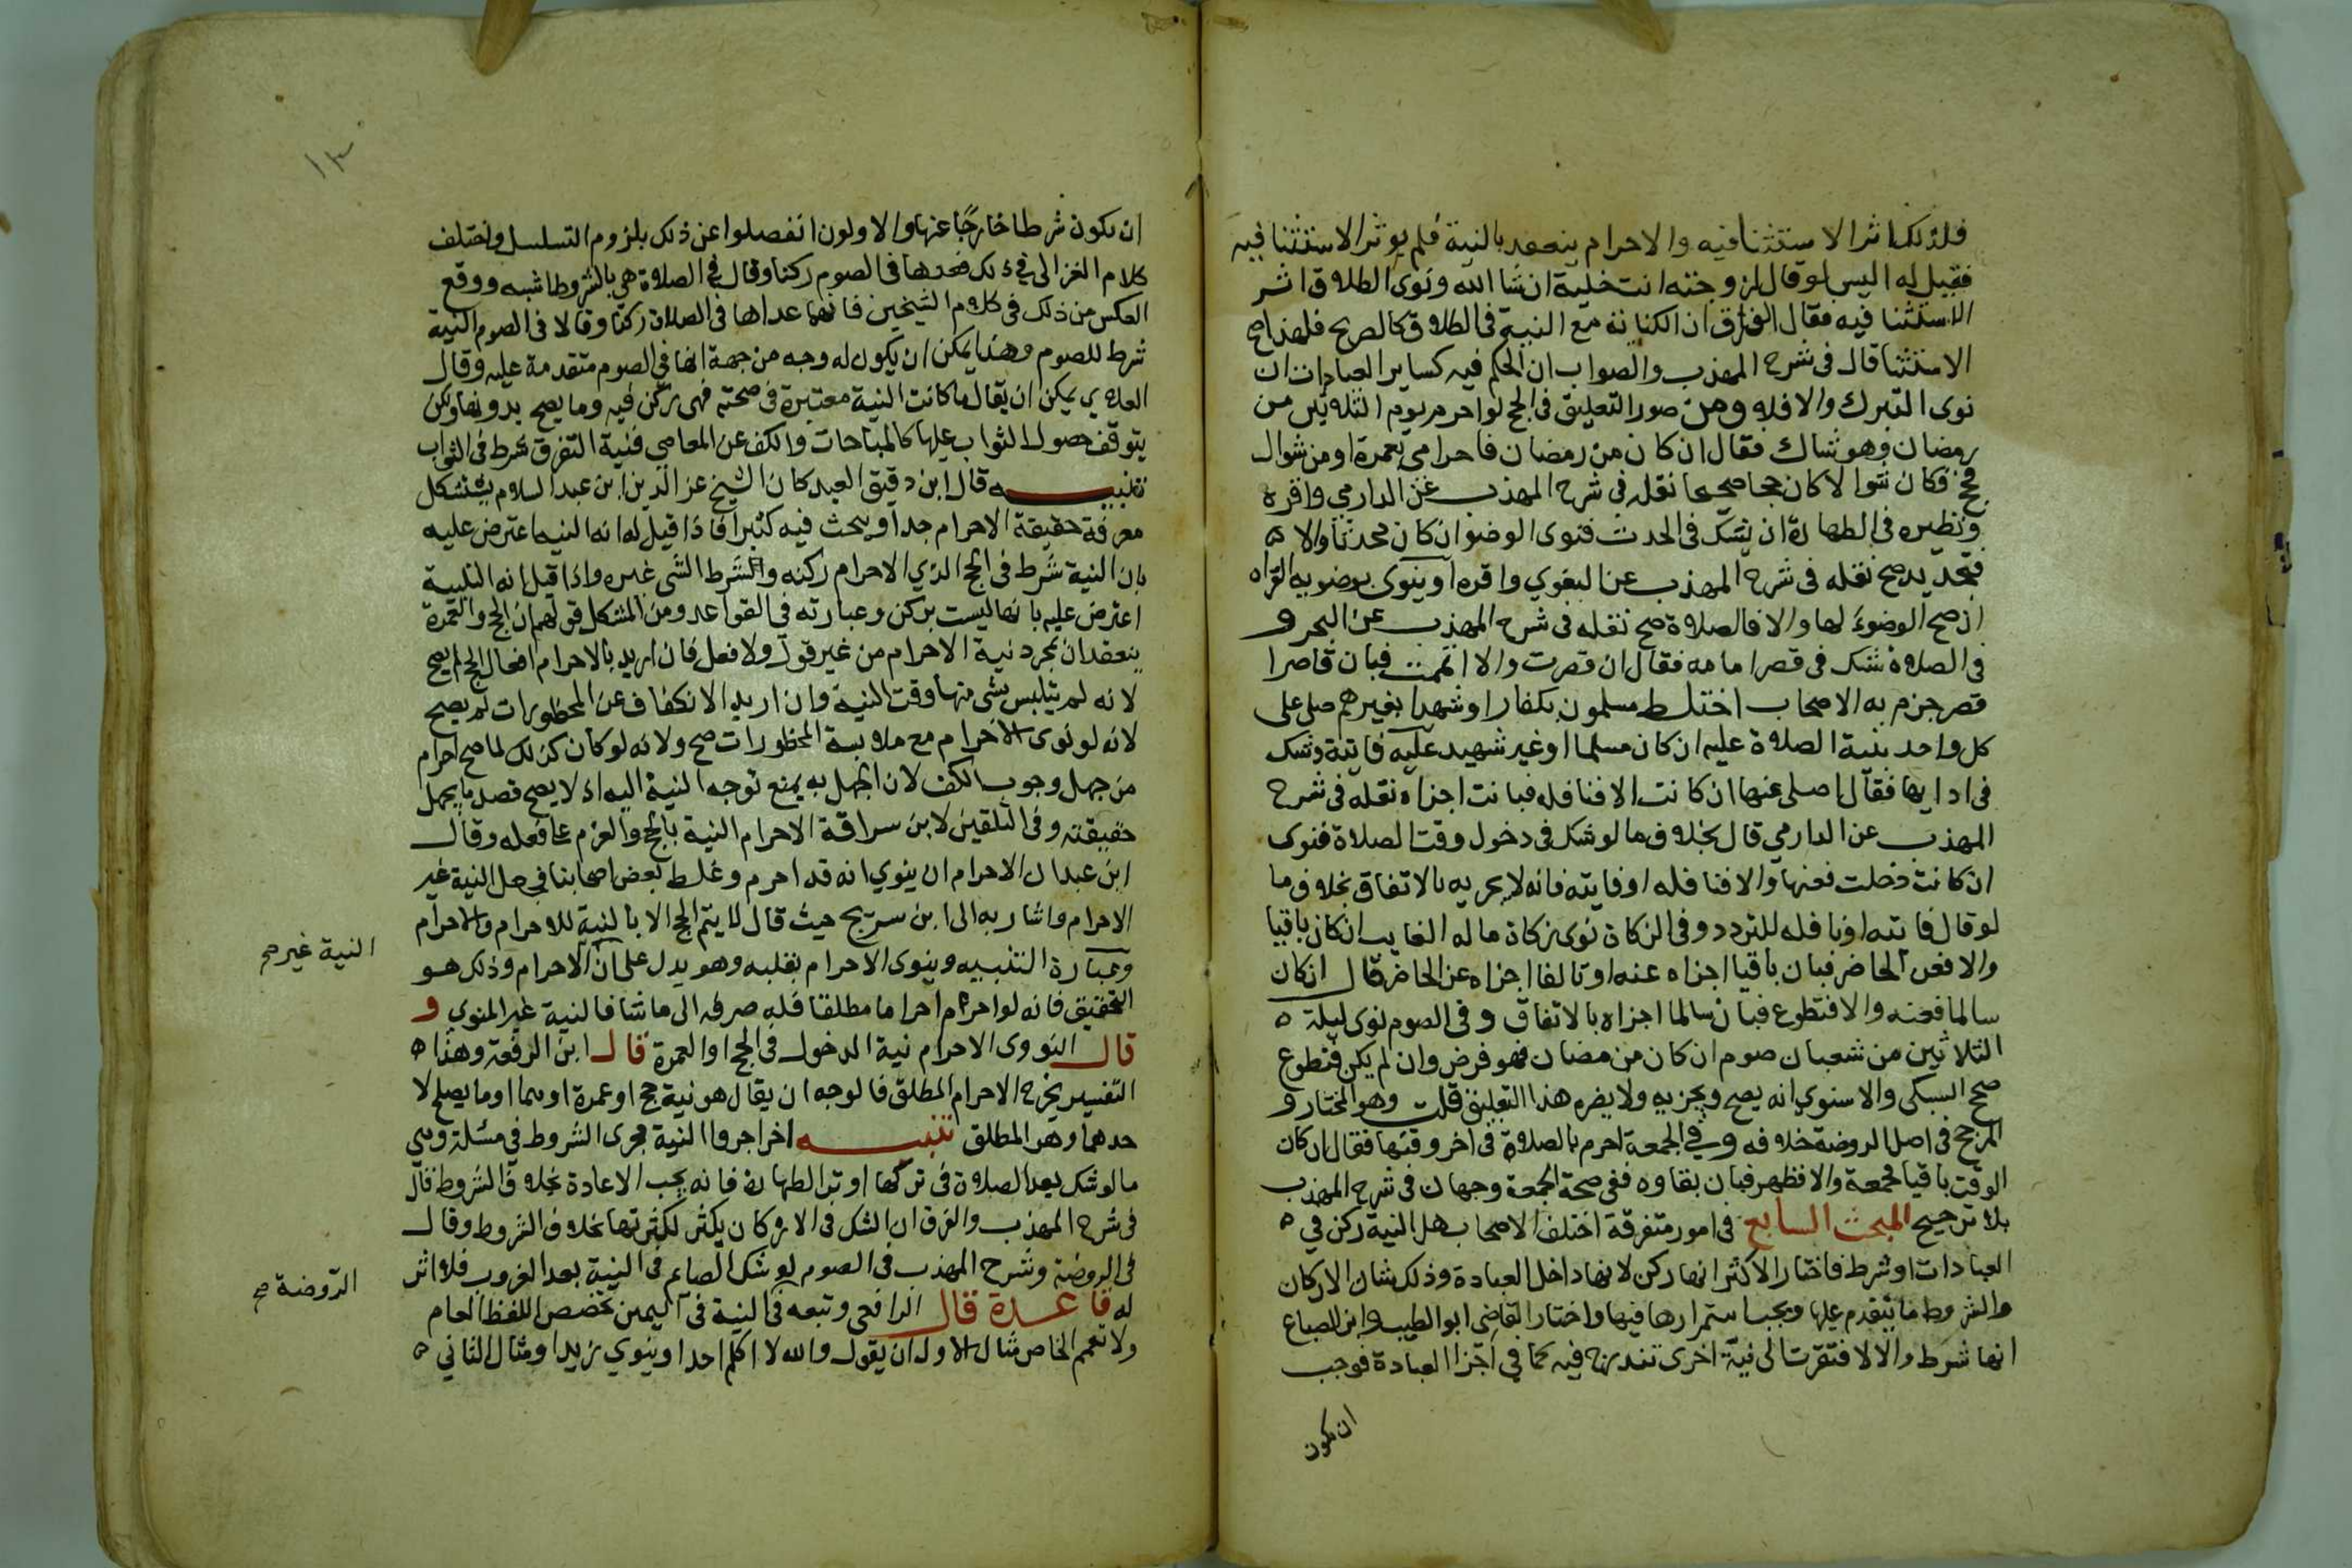 فلذلك اثر الاستثنا فيه والاحرام ينعقد بالنية فلم يوثر الاستثنا فيه
فقيل له اليس لو قال لزوجته انت خلية ان شا الله ونوى الطلاق اثر
الاستثنا فيه فقال الفرق ان الكناية مع النية في الطلاق كالصريح فلهذا صح
الاستثنا قال في شرح المهذب والصواب ان الحكم فيه كساير العبادات ان
نوى التبرك والا فلا ومن صور التعليق في الحج لو احرم يوم الثلاثين من
رمضان وهو شاك فقال ان كان من رمضان فاحرامي بعمرة او من شوال
فحج فكان شوالا كان حجا صحيحا نقله في شرح المهذب عن الدارمي واقره
ونظيره في الطهارة ان يشك في الحدث فنوى الوضوا ان كان محدثا والا ه
فتجديد صح نقله في شرح المهذب عن البغوي واقره او ينوى بوضويه القراه
ان صح الوضوء لها والا فالصلاة صح نقله في شرح المهذب عن البحر و
في الصلاة شك في قصر امامه فقال ان قصرت والا اتممت فبان قاصرا
قصر جزم به الاصحاب اختلط مسلمون بكفار او شهدا بغيرهم صلى على
كل واحد بنية الصلاة عليه ان كان مسلما او غير شهيد عليه فايتة وشك
في ادايها فقال اصلى عنها ان كانت والا فنافله فبانت اجزاه نقله في شرح
المهذب عن الدارمي قال بخلاف ما لو شك في دخول وقت الصلاة فنوى
ان كانت دخلت فعنها والا فنافله او فايته فانه لا يجزيه بالاتفاق بخلاف ما
لو قال فايته او نافله للتردد وفي الزكاة نوى زكاة ماله الغايب ان كان باقيا
والا فعن الحاضر فبان باقيا اجزاه عنه او تالفا اجزاه عن الحاضر قال ان كان
سالما فعنه والا فتطوع فبان سالما اجزاه بالاتفاق وفي الصوم نوى ليلة ه
الثلاثين من شعبان صوم ان كان من رمضان فهو فرض وان لم يكن فتطوع
صحح السبكى والاسنوى انه يصح ويجزيه ولا يضره هذا التعليق قلت وهو المختار و
المرجح في اصل الروضة خلافه وفي الجمعة احرم بالصلاة في اخر وقتها فقال ان كان
الوقت باقيا فجمعة والا فظهر فبان بقاوه ففي صحة الجمعة وجهان في شرح المهذب
بلا ترجيح المبحث السابع في امور متفرقة اختلف الاصحاب هل النية ركن في ه
العبادات او شرط فاختار الاكثر انها ركن لانها داخل العبادة وذلك شان الاركان
والشروط ما يتقدم عليها ويجب استمرارها فيها واختار القاضي ابو الطيب وابن الصباغ
انها شرط والا لافتقرت الى نية اخرى تندرج فيه كما في اجزا العبادة فوجب
ان تكون
ان تكون شرطا خارجا عنها والاولون انفصلوا عن ذلك بلزوم التسلسل واختلف
كلام الغزالى في ذلك فعدها في الصوم ركنا وقال في الصلاة هي بالشروط اشبه ووقع
العكس من ذلك في كلام الشيخين فانهما عداها في الصلاة ركنا وقالا في الصوم النية
شرط للصوم وهذا يمكن ان يكون له وجه من جهة انها في الصوم متقدمة عليه وقال
العلاي يمكن ان يقال ما كانت النية معتبرة في صحته فهي ركن فيه وما يصح بدونها ولكن
يتوقف حصول الثواب عليها كالمباحات والكف عن المعاصي فنية التقرب شرط في الثواب
تنبيه قال ابن دقيق العيد كان الشيخ عز الدين ابن عبد السلام يستشكل
معرفة حقيقة الاحرام جدا ويبحث فيه كثيرا فاذا قيل له انه النيه اعترض عليه
بان النية شرط في الحج الذي الاحرام ركنه والشرط الشي غيره واذا قيل انه التلبية
اعترض عليه بانها ليست بركن وعبارته في القواعد ومن المشكل قولهم ان الحج والعمرة
ينعقدان بمجرد نية الاحرام من غير قول ولا فعل فان اريد بالاحرام افعال الحج لم يصح
لانه لم يتلبس بشي منها وقت النية وان اريد الانكفاف عن المحظورات لم يصح
لانه لو نوى الاحرام مع ملابسة المحظورات صح ولانه لو كان كذلك لما صح احرام
من جهل وجوب الكف لان الجهل به يمنع توجه النية اليه اذ لا يصح قصد ما يجهل
حقيقته وفي التلقين لابن سراقة الاحرام النية بالحج والعزم على فعله وقال
ابن عبدان الاحرام ان ينوي انه قد احرم وغلط بعض اصحابنا في جعل النية غير
الاحرام واشار به الى ابن سريج حيث قال لا يتم الحج الا بالنية للاحرام والاحرام
وعبارة التنبيه وينوى الاحرام بقلبه وهو يدل على ان الاحرام وذلك هو
النية غير صح
التحقيق فانه لو احرم احراما مطلقا فله صرفه الى ما شا فالنية غير المنوي و
قال النووى الاحرام نية الدخول في الحج او العمرة قال ابن الرفعة وهذا ه
التفسير يخرج الاحرام المطلق فالوجه ان يقال هو نية حج او عمرة او هما او ما يصلح لا
حدهما وهو المطلق تنبيه اخر اجروا النية مجرى الشروط في مسئلة وهي
ما لو شك بعد الصلاة في تركها او ترك الطهارة فانه يجب الاعادة بخلاف الشروط قال
في شرح المهذب والفرق ان الشك في الاركان يكثر لكثرتها بخلاف الشروط وقال
في الروضة وشرح المهذب في الصوم لو شك الصايم في النية بعد الغروب فلا اثر
الروضة صح
له قاعدة قال الرافعى وتبعه في النية في اليمين تخصص اللفظ العام
ولا تعمم الخاص مثال الاول ان يقول والله لا اكلم احدا وينوي زيدا ومثال الثاني ه